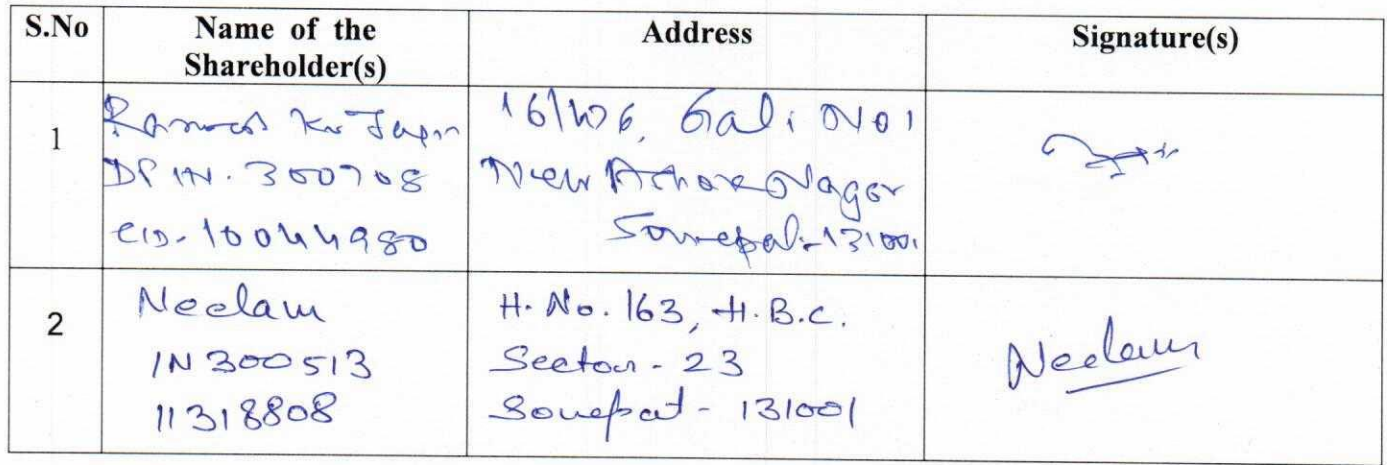 S.No Name of the Shareholder(s) Address Signature(s)
1
Ku Jain
DP IN. 300708
CID. 10044980
Gali No 1
New Ashok Nagar
Sonepat-131001
2
Neelam
IN 300513
11318808
H. No. 163, H.B.C.
Sector - 23
Sonepat - 131001
Neelam